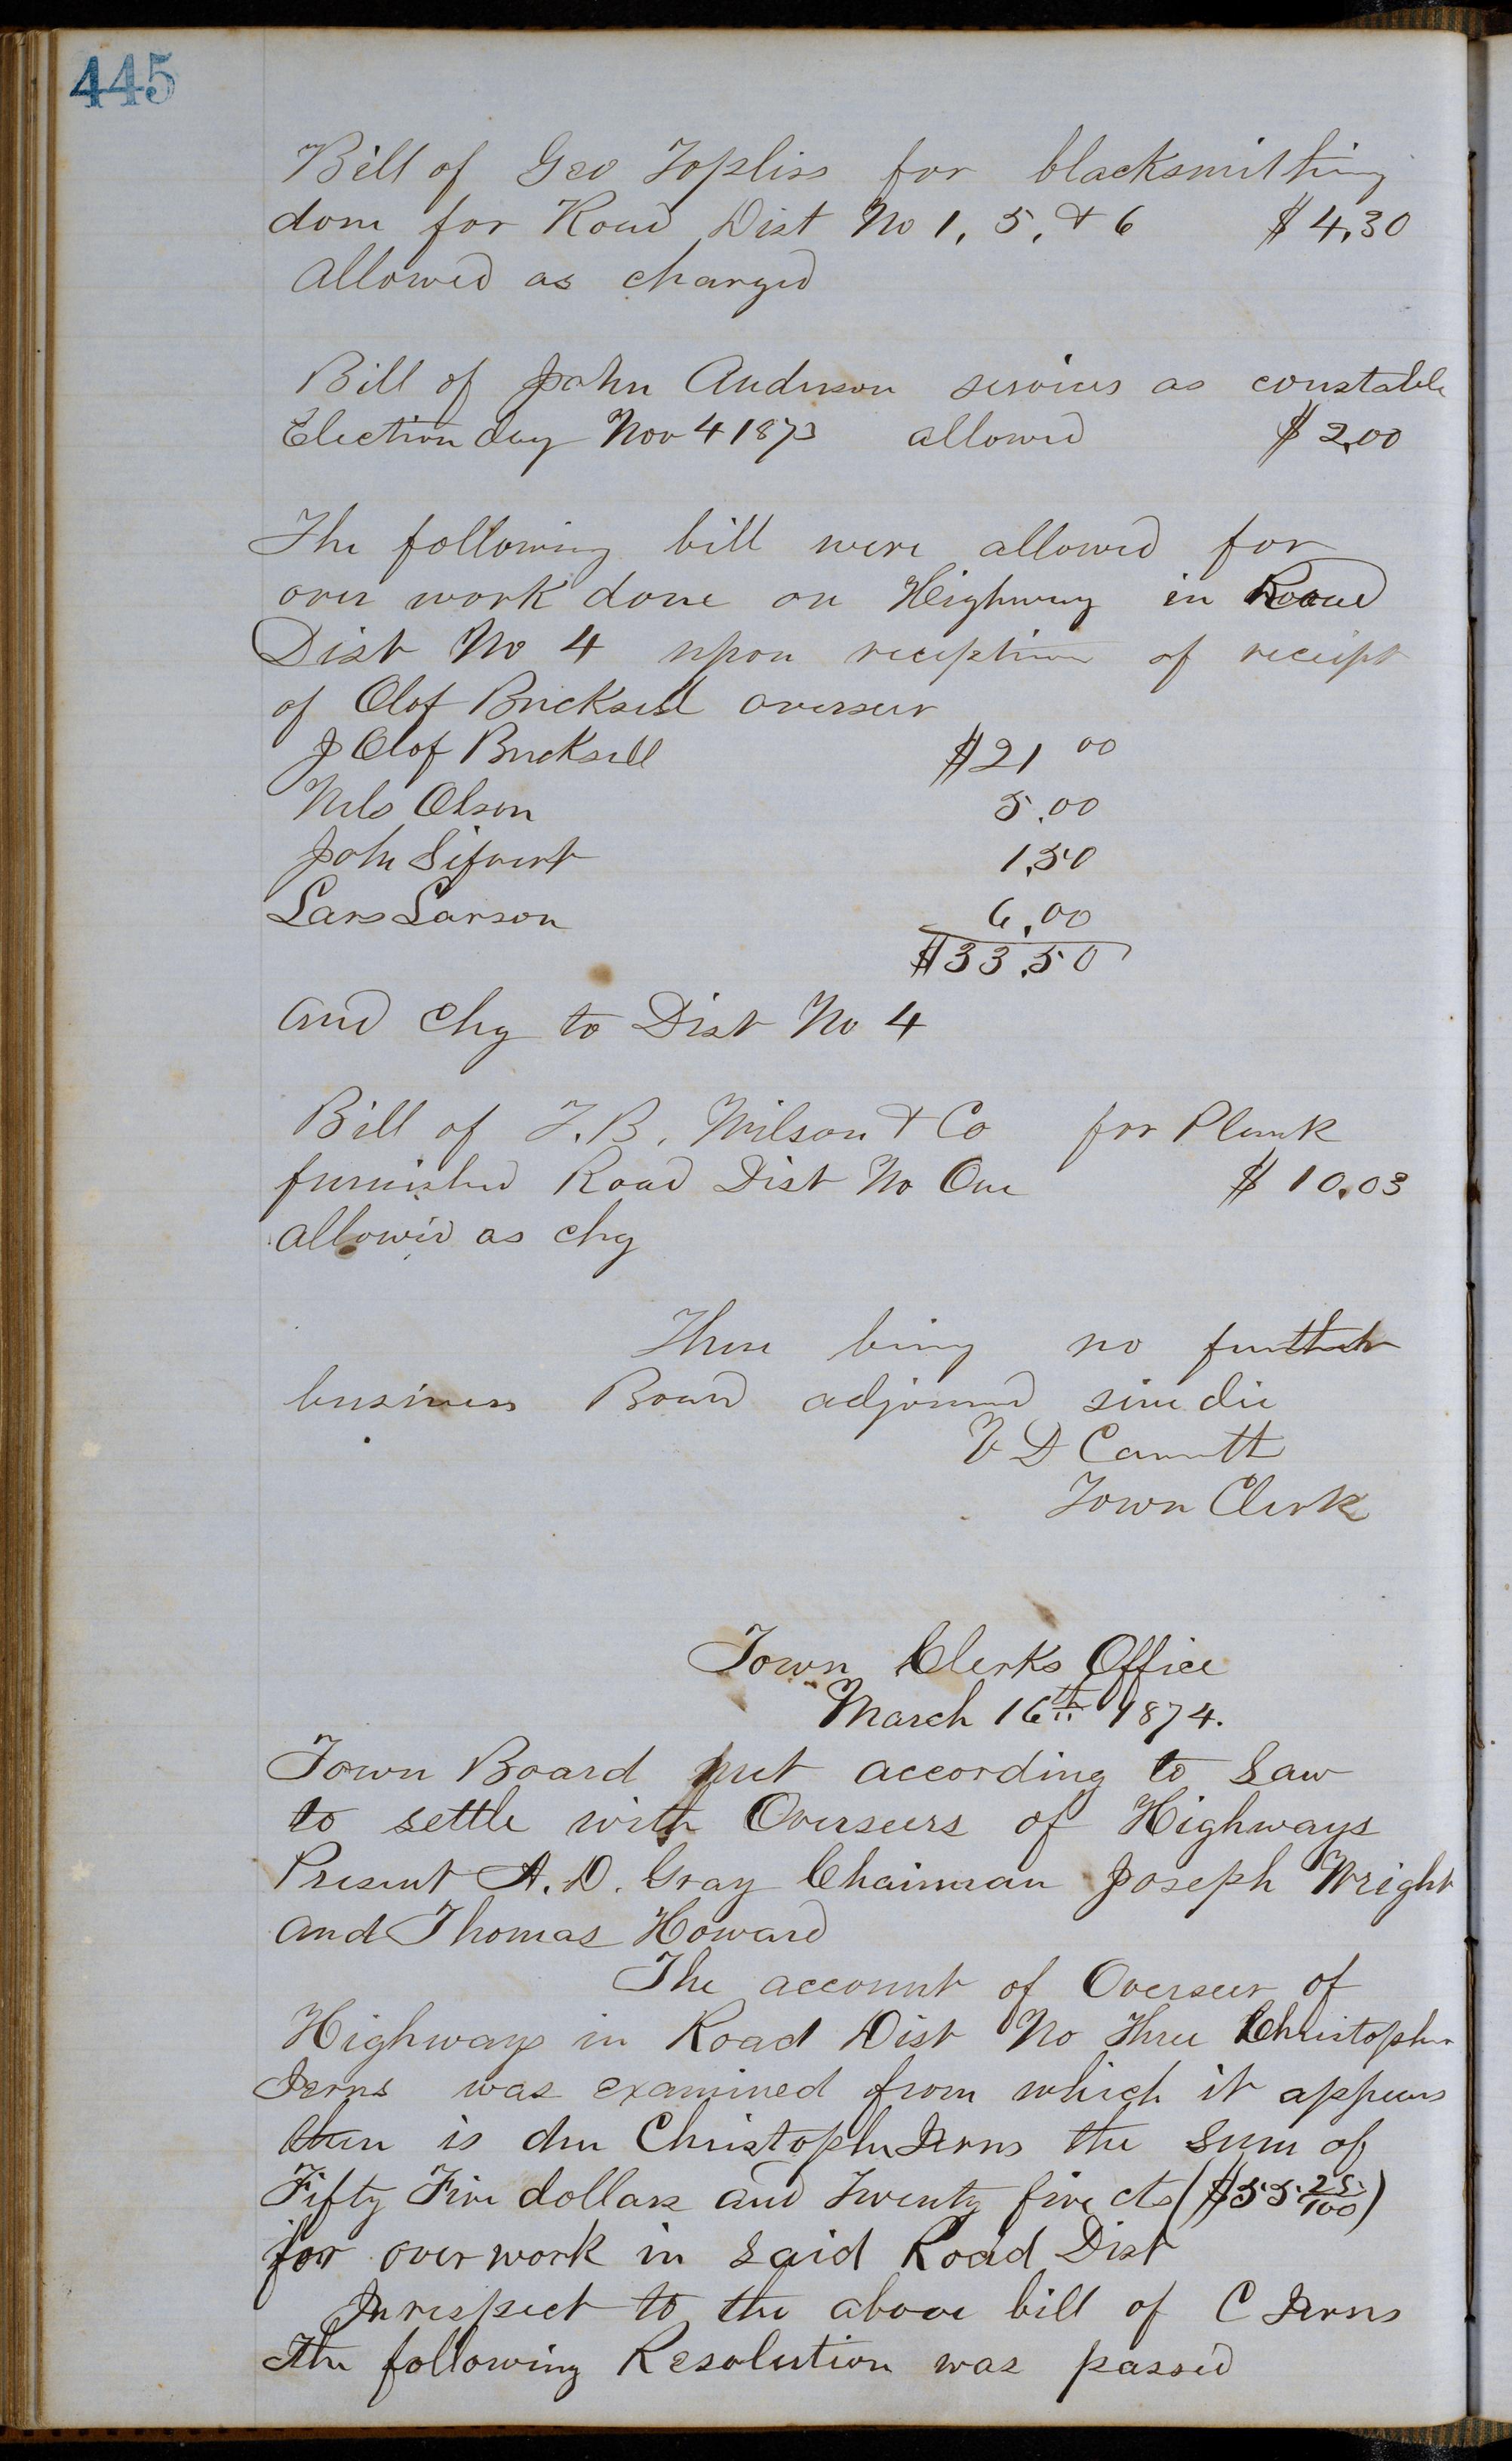 445
Bill of Geo Topliss for blacksmithing
done for Road Dist No 1, 5, & 6 $4,30
Allowed as charged
Bill of John Anderson services as constable
Election day Nov 4 1873 allowed $2,00
The following bill were allowed for
over work done on Heighway in Road
Dist No 4 upon reception of receipt
of Olof Bricksell overseer
J Olof Bricksell $21 00
Nels Olson 5.00
John 1,50
Lars Larson 6,00
$33,50
and chg to Dist No 4
Bill of T. B. Wilson & Co for Plank
furnished Road Dist No One $10,03
allowed as chg
There being no further
business Board adjourned sine die
V D Carruth
Town Clerk
Town Clerks Office
March 16th 1874.
Town Board met according to Law
to settle with Overseers of Highways
Present A. D. Gray Chairman Joseph Wright
and Thomas Howard
The account of Overseer of
Highways in Road Dist No Three Christopher
Jerns was examined from which it appears
there is due Christopher Jerns the Sum of
Fifty Five dollars and Twenty five cts ($55 25/100)
for over work in Said Road Dist
In respect to the above bill of C Jerns
The following Resolution was passed